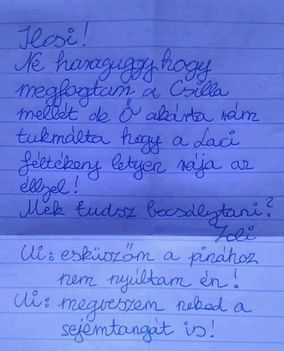 Ilcsi!
Ne haraguggy hogy
megfogtam a Csilla
mellét de Ő akárta rám
tukmálta hogy a Laci
féltékeny letyen rája az
éllzel!
Mek tudsz bocsálytani?
Zoli
Ui: esküszöm a pinához
nem nyúltam én!
Ui: megveszem neked a
sejemtangát is!